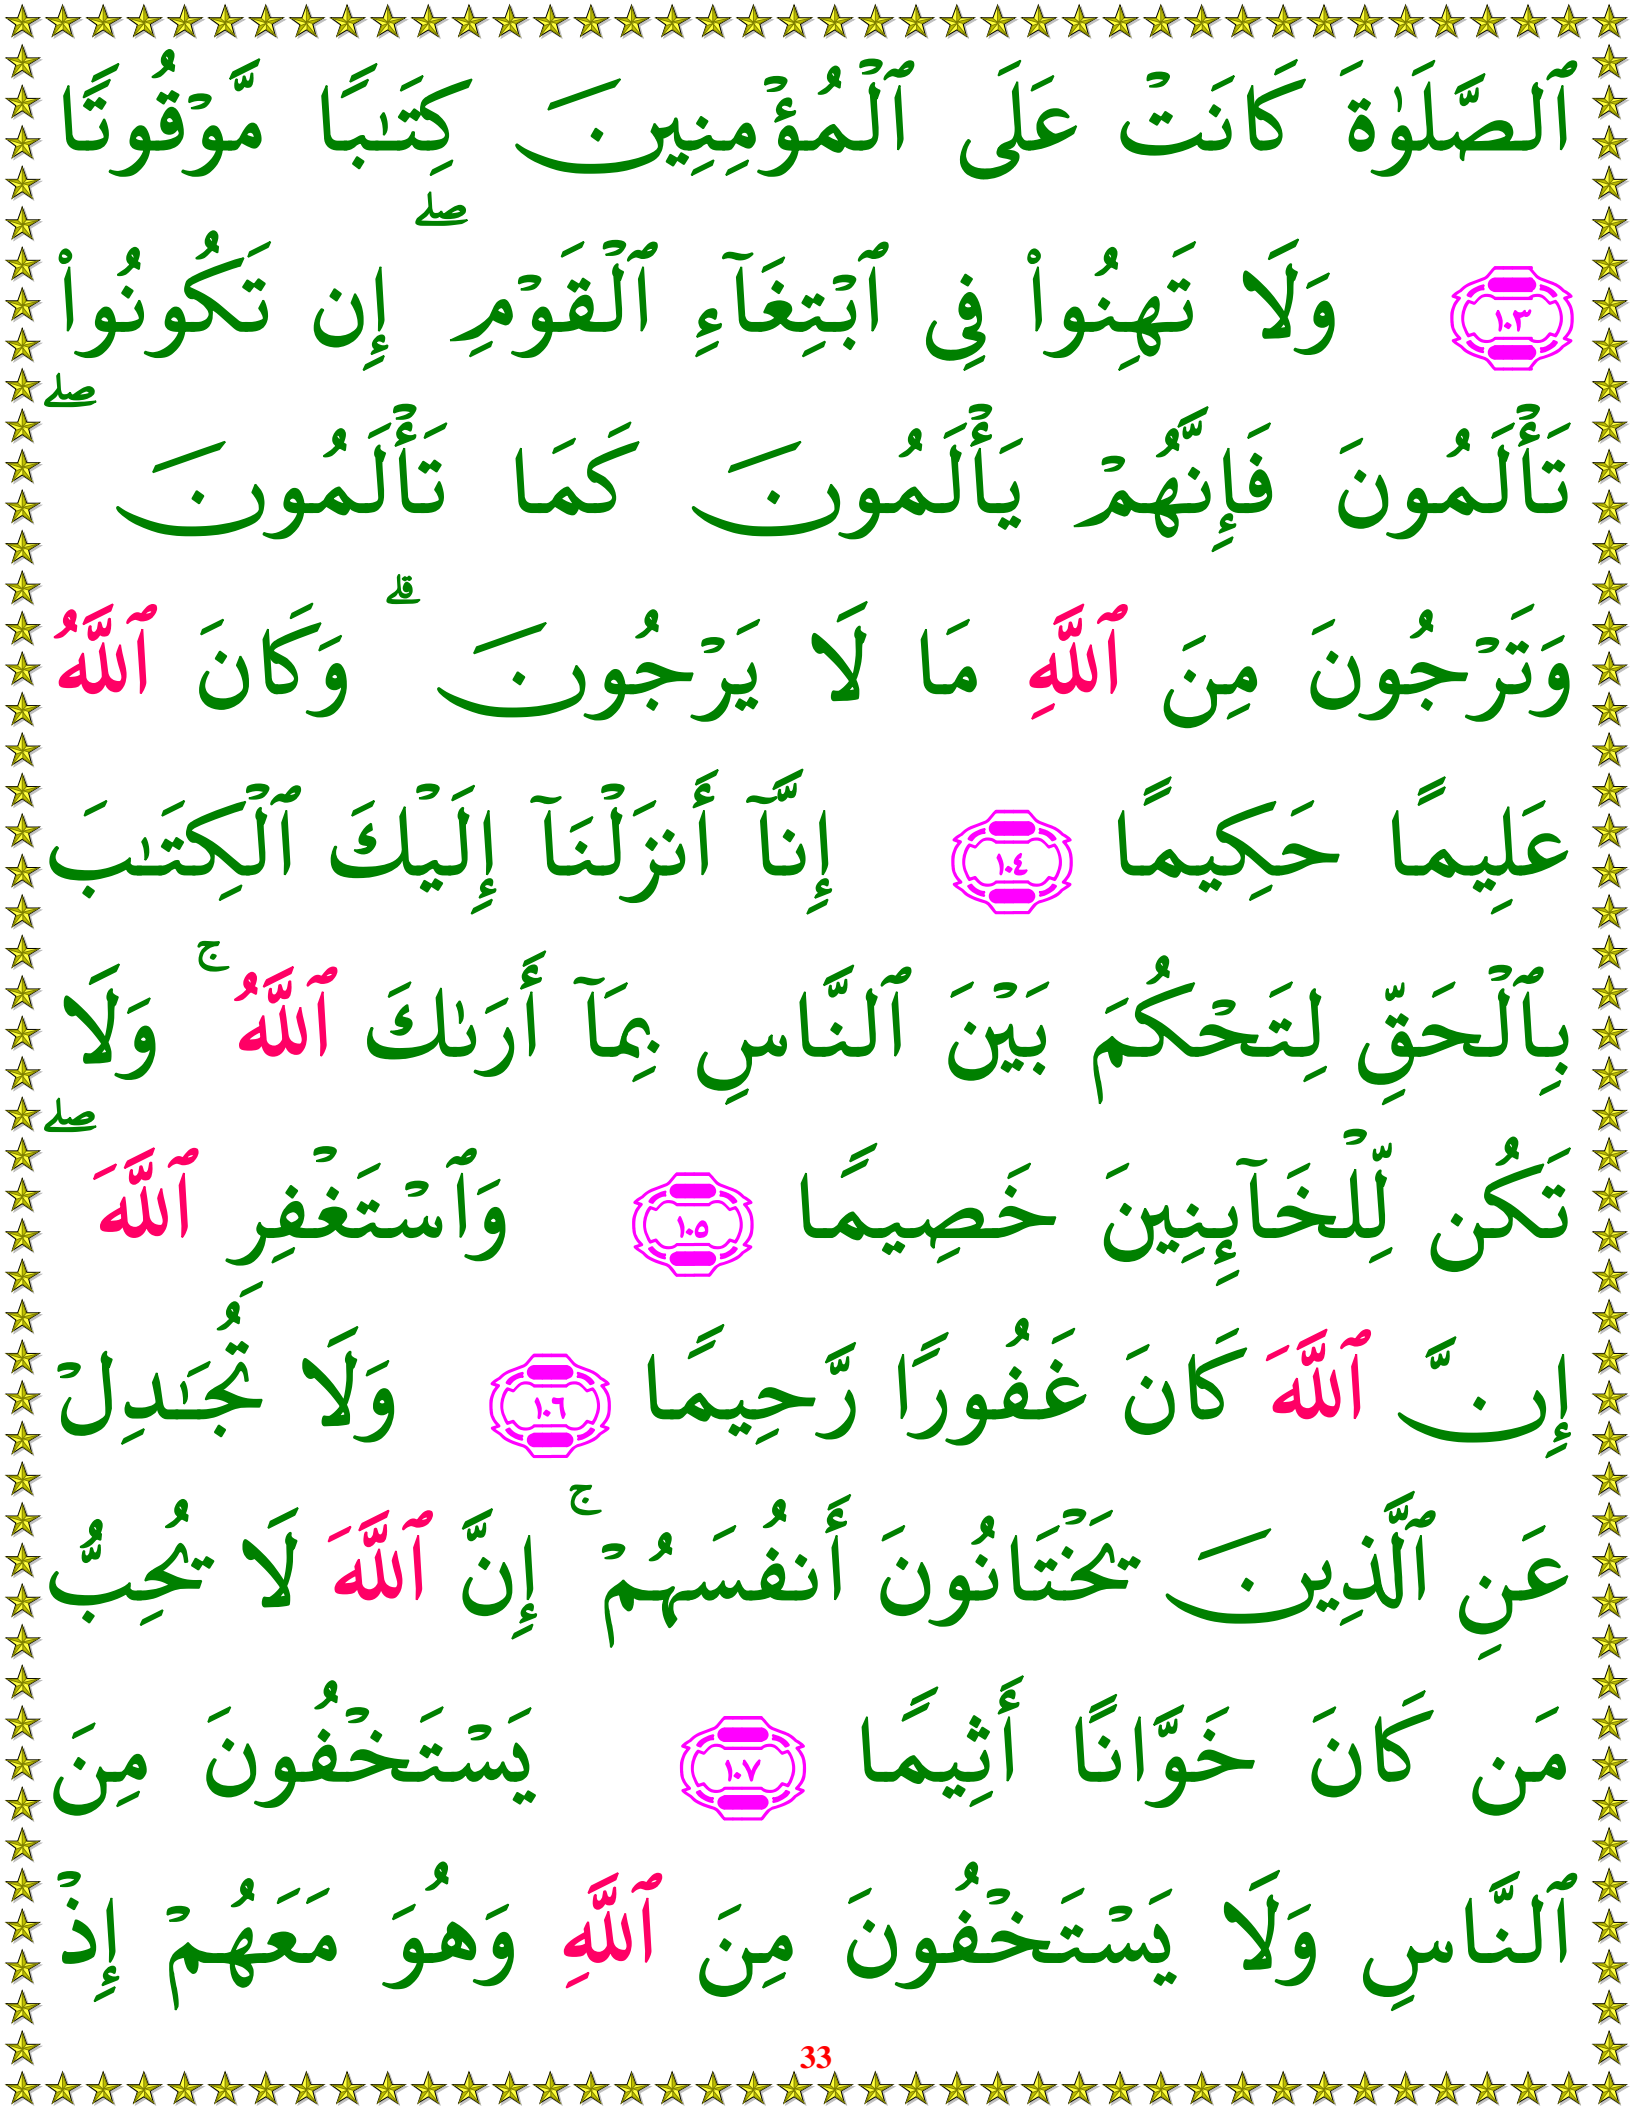 ٱلصَّلَوٰةَ كَانَتْ عَلَى ٱلْمُؤْمِنِينَ كِتَـٰبًا مَّوْقُوتًا
﴿١٠٣﴾ وَلَا تَهِنُوا۟ فِى ٱبْتِغَآءِ ٱلْقَوْمِ ۖ إِن تَكُونُوا۟
تَأْلَمُونَ فَإِنَّهُمْ يَأْلَمُونَ كَمَا تَأْلَمُونَ ۖ
وَتَرْجُونَ مِنَ ٱللَّهِ مَا لَا يَرْجُونَ ۗ وَكَانَ ٱللَّهُ
عَلِيمًا حَكِيمًا ﴿١٠٤﴾ إِنَّآ أَنزَلْنَآ إِلَيْكَ ٱلْكِتَـٰبَ
بِٱلْحَقِّ لِتَحْكُمَ بَيْنَ ٱلنَّاسِ بِمَآ أَرَىٰكَ ٱللَّهُ ۚ وَلَا
تَكُن لِّلْخَآئِنِينَ خَصِيمًا ﴿١٠٥﴾ وَٱسْتَغْفِرِ ٱللَّهَ ۖ
إِنَّ ٱللَّهَ كَانَ غَفُورًا رَّحِيمًا ﴿١٠٦﴾ وَلَا تُجَـٰدِلْ
عَنِ ٱلَّذِينَ يَخْتَانُونَ أَنفُسَهُمْ ۚ إِنَّ ٱللَّهَ لَا يُحِبُّ
مَن كَانَ خَوَّانًا أَثِيمًا ﴿١٠٧﴾ يَسْتَخْفُونَ مِنَ
ٱلنَّاسِ وَلَا يَسْتَخْفُونَ مِنَ ٱللَّهِ وَهُوَ مَعَهُمْ إِذْ
33